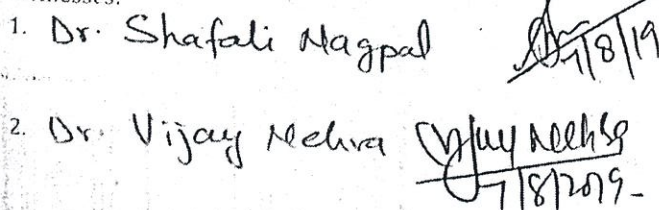 1. Dr. Shafali Nagpal 7/8/19
2. Dr. Vijay Mehra Vijay Mehra
7/8/2019-